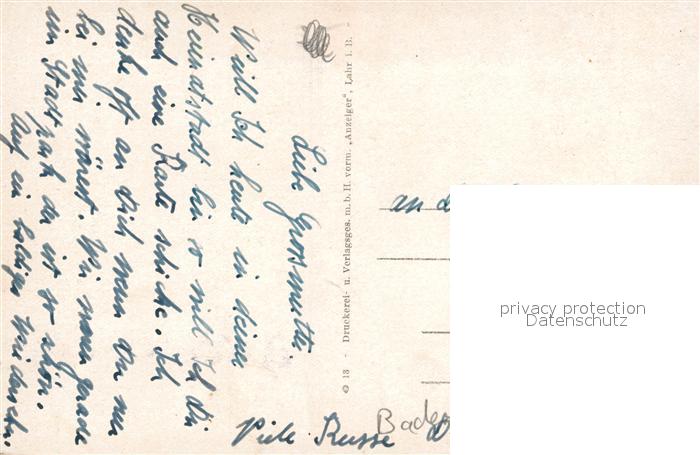 Liebe Grossmutter.
Weil Ich heute in deiner
Heimatstadt bin so will Ich Dir
auch eine Karte schicke. Ich
denke oft an dich wenn du nur
bei mir wärest. Wir waren gerade
im Stadtpark der ist so schön.
Auf ein baldiges Wiedersehn.
Viele Küsse
an
Baden
© 13 - Druckerei- u. Verlagsges. m. b. H. vorm. „Anzeiger“, Lahr i. B.
privacy protection
Datenschutz